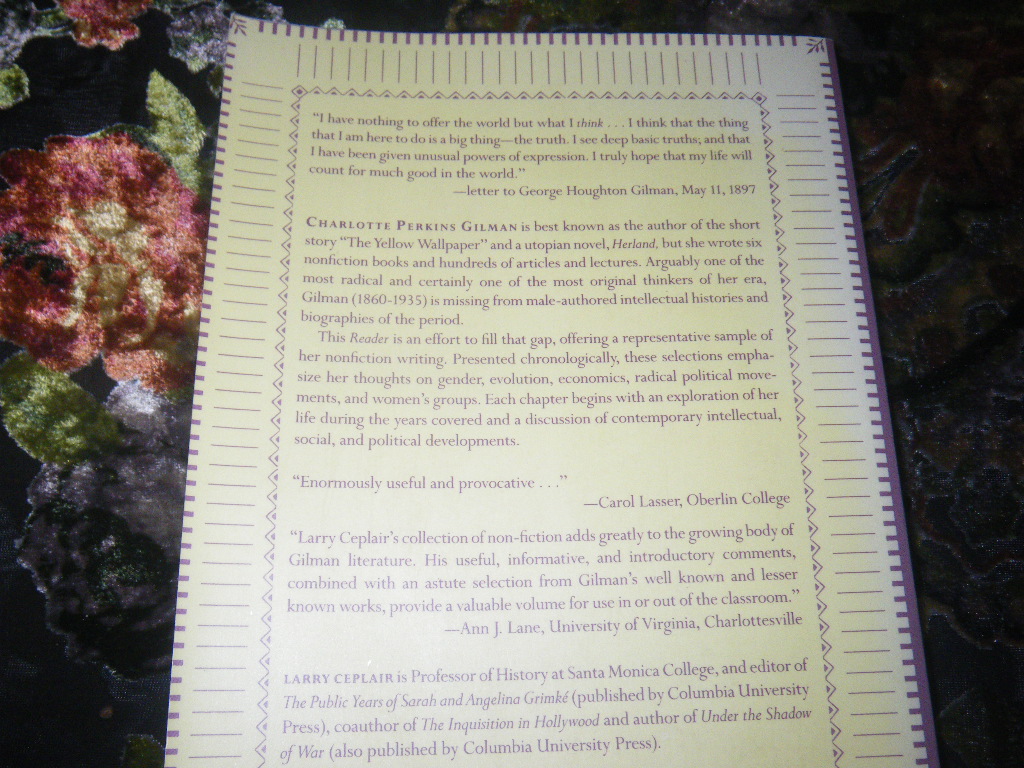 “I have nothing to offer the world but what I think . . . I think that the thing
that I am here to do is a big thing—the truth. I see deep basic truths; and that
I have been given unusual powers of expression. I truly hope that my life will
count for much good in the world.”
—letter to George Houghton Gilman, May 11, 1897
CHARLOTTE PERKINS GILMAN is best known as the author of the short
story “The Yellow Wallpaper” and a utopian novel, Herland, but she wrote six
nonfiction books and hundreds of articles and lectures. Arguably one of the
most radical and certainly one of the most original thinkers of her era,
Gilman (1860-1935) is missing from male-authored intellectual histories and
biographies of the period.
This Reader is an effort to fill that gap, offering a representative sample of
her nonfiction writing. Presented chronologically, these selections empha-
size her thoughts on gender, evolution, economics, radical political move-
ments, and women’s groups. Each chapter begins with an exploration of her
life during the years covered and a discussion of contemporary intellectual,
social, and political developments.
“Enormously useful and provocative . . .”
—Carol Lasser, Oberlin College
“Larry Ceplair’s collection of non-fiction adds greatly to the growing body of
Gilman literature. His useful, informative, and introductory comments,
combined with an astute selection from Gilman’s well known and lesser
known works, provide a valuable volume for use in or out of the classroom.”
—Ann J. Lane, University of Virginia, Charlottesville
LARRY CEPLAIR is Professor of History at Santa Monica College, and editor of
The Public Years of Sarah and Angelina Grimké (published by Columbia University
Press), coauthor of The Inquisition in Hollywood and author of Under the Shadow
of War (also published by Columbia University Press).